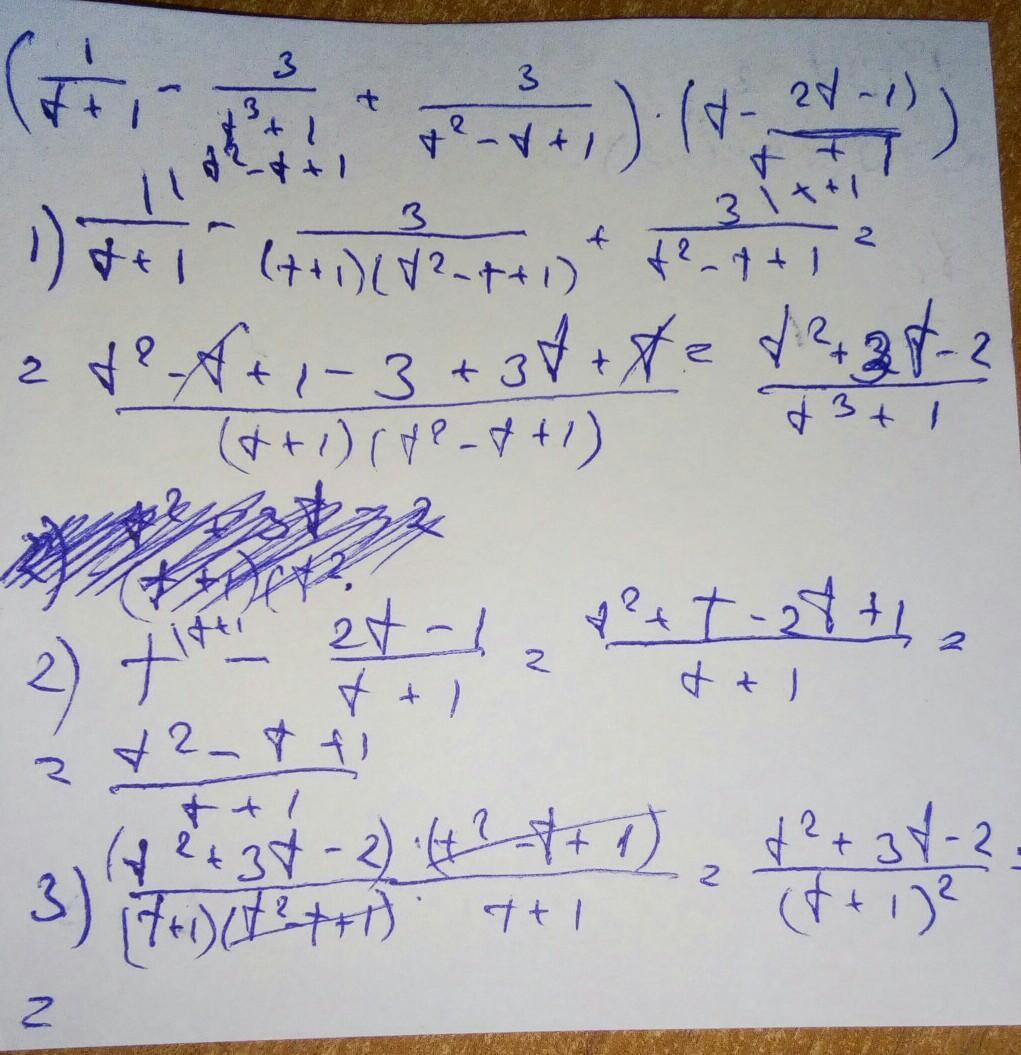 (1/(t+1) - 3/(t³+1) + 3/(t²-t+1)) · (t - (2t-1)/(t+1))
t²-t+1
1) 1\/(t+1) - 3/((t+1)(t²-t+1)) + 3\ˣ⁺¹/(t²-t+1) =
= (t²-t+1-3+3t+t)/((t+1)(t²-t+1)) = (t²+3t-2)/(t³+1)
2) t\ᵗ⁺¹ - (2t-1)/(t+1) = (t²+t-2t+1)/(t+1) =
= (t²-t+1)/(t+1)
3) (t²+3t-2)·(t²-t+1)/((t+1)(t²-t+1)·t+1) = (t²+3t-2)/(t+1)² =
=